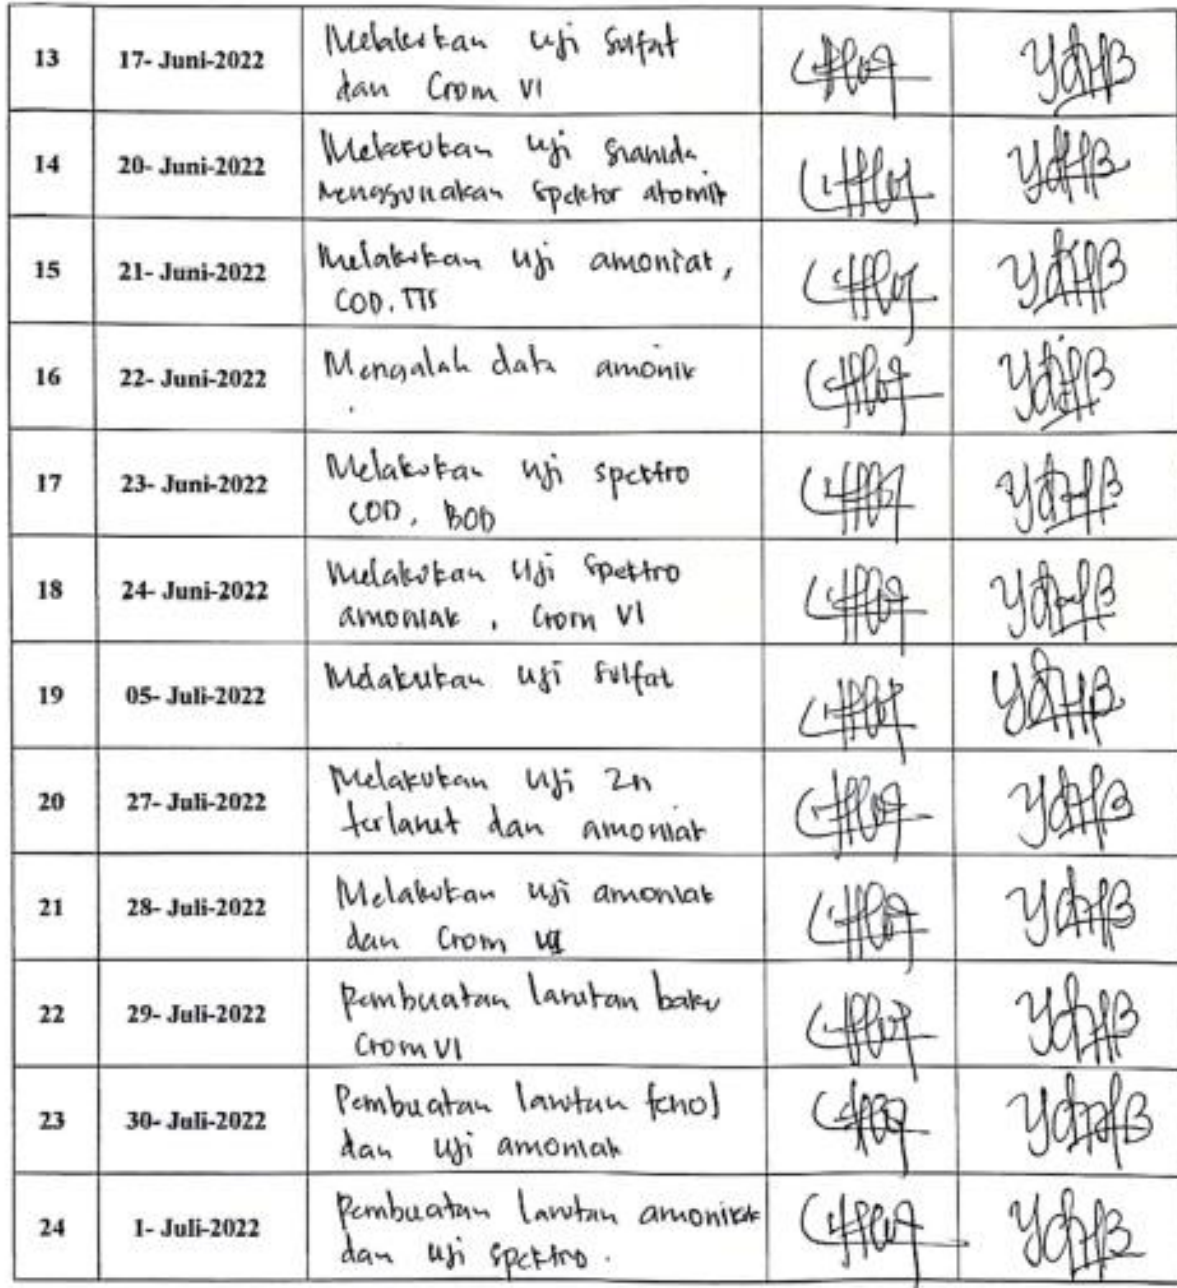 13 17- Juni-2022 Melakukan uji Sulfat
dan Crom VI
14 20- Juni-2022 Melakukan uji Sianida
Menggunakan Spektor atomik
15 21- Juni-2022 Melakukan uji amoniak,
COD, TTS
16 22- Juni-2022 Mengalah data amonik
17 23- Juni-2022 Melakukan uji spektro
COD, BOD
18 24- Juni-2022 Melakukan Uji Spektro
amoniak, Crom VI
19 05- Juli-2022 Melakukan uji Sulfat
20 27- Juli-2022 Melakukan Uji Zn
terlarut dan amoniak
21 28- Juli-2022 Melakukan uji amoniak
dan Crom VI
22 29- Juli-2022 Pembuatan larutan baku
Crom VI
23 30- Juli-2022 Pembuatan larutan fenol
dan Uji amoniak
24 1- Juli-2022 Pembuatan larutan amoniak
dan uji spektro.